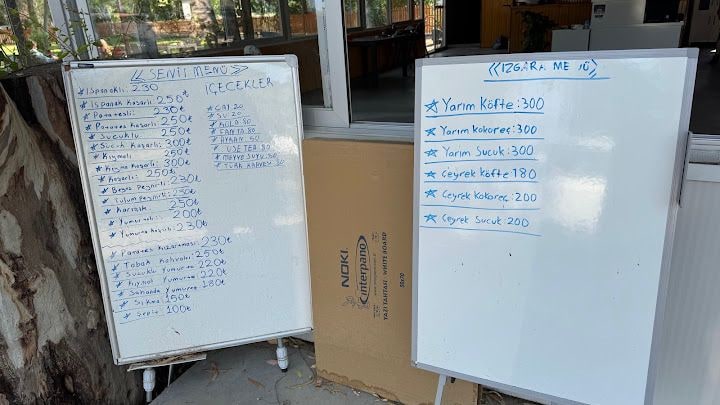 ≪ SENİS MENÜ ≫
* Ispanaklı: 230
* Ispanak Kaşarlı: 250₺
* Patatesli: 230₺
* Patates Kaşarlı: 250₺
* Sucuklu: 250₺
* Sucuk Kaşarlı: 300₺
* Kıymalı: 250₺
* Kıyma Kaşarlı: 300₺
* Kaşarlı: 250₺
* Beyaz Peynirli: 230₺
* Tulum Peynirli: 230₺
* Karışık: 250₺
* Yumurtalı: 200₺
* Yumurta Kaşarlı: 230₺
* Patates Kızartması: 230₺
* Tabak Kahvaltı: 250₺
* Sucuklu Yumurta: 220₺
* Kıymalı Yumurta: 220₺
* Sahanda Yumurta: 180₺
* Sıkma: 150₺
* 100₺
İÇECEKLER
* ÇAY 20
* SU: 20
* KOLA: 80
* FANTA: 80
* AYRAN: 50
* MEYVE SUYU: 50
* TÜRK KAHVESİ: 80
NOKI
interpano
YAZI TAHTASI - WHITE BOARD
≪IZGARA ME
☆ Yarım Köfte: 300
☆ Yarım kokoreç: 300
☆ Yarım Sucuk: 300
☆ Çeyrek Köfte 180
☆ Çeyrek Kokoreç: 200
☆ Çeyrek Sucuk: 200